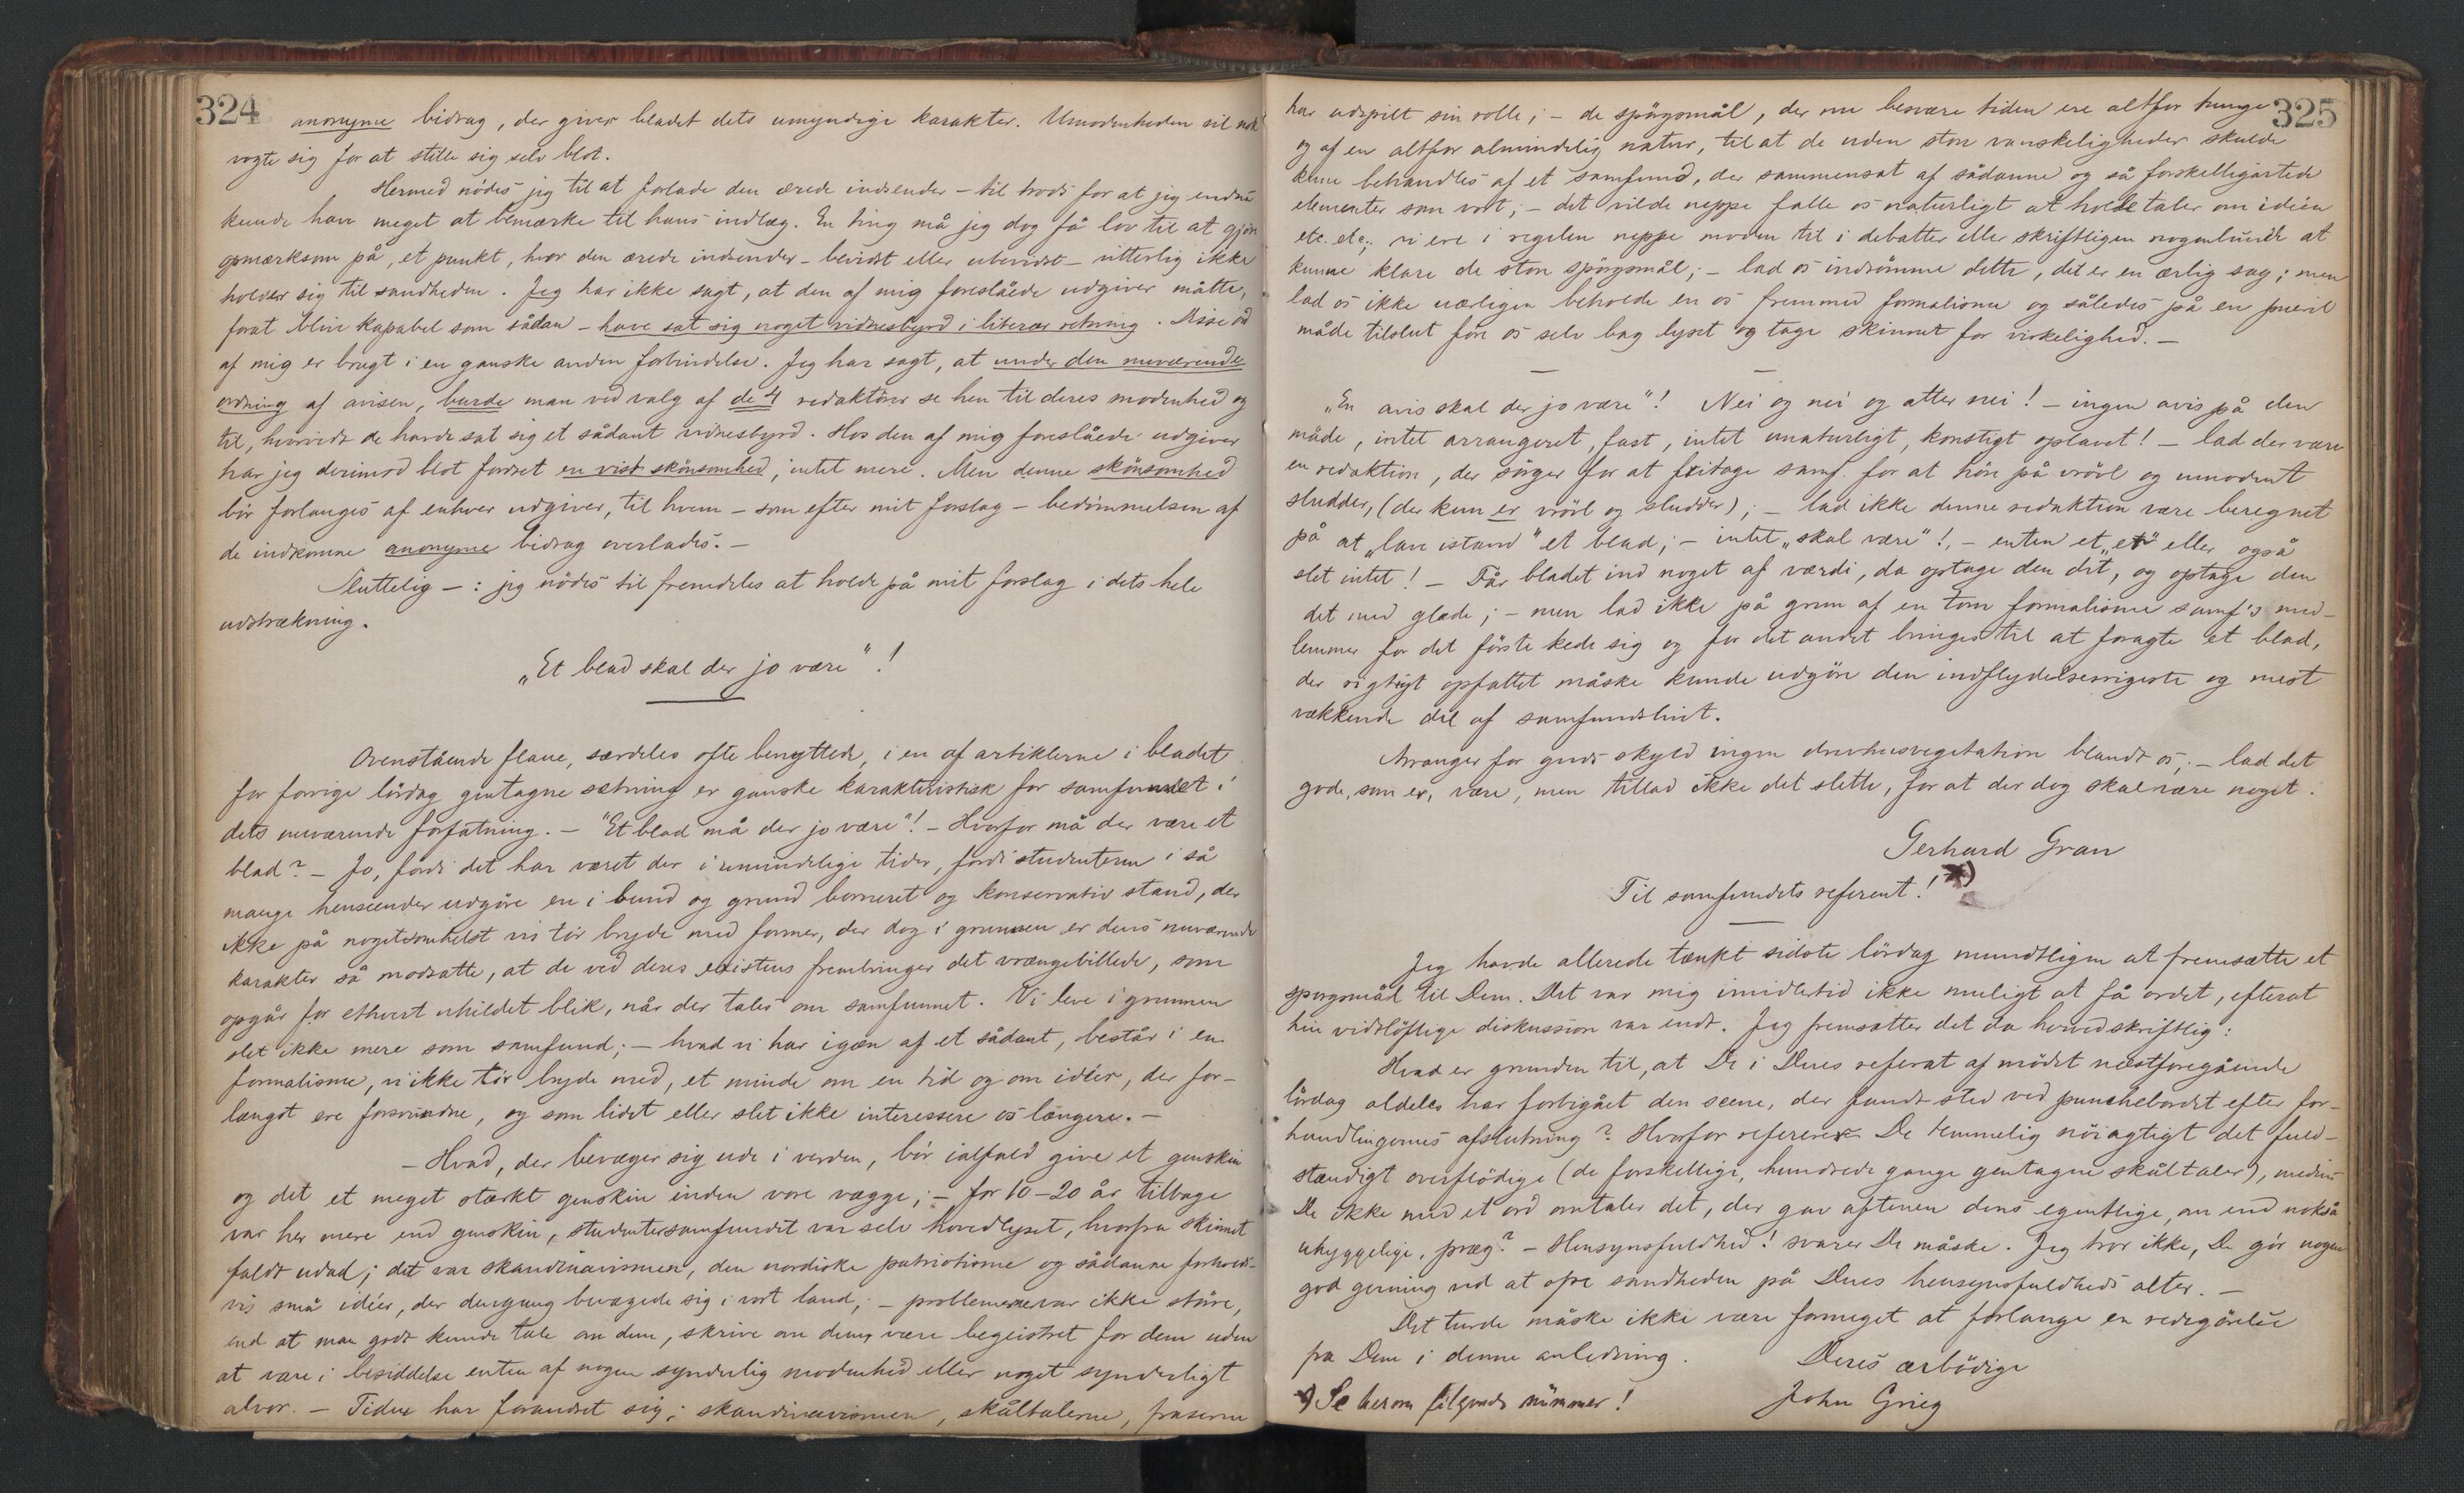 324
anonyme bidrag, der giver bladet dets umyndige karakter. Umodenheden vil nok
vogte sig for at stille sig selv blot.
Hermed nödes jeg til at forlade den ærede indsender – til trods for at jeg endnu
kunde have meget at bemærke til hans indlæg. En ting må jeg dog få lov til at gjöre
opmærksom på, et punkt, hvor den ærede indsender – bevidst eller ubevidst – vitterlig ikke
holder sig til sandheden. Jeg har ikke sagt, at den af mig foreslåede udgiver måtte,
forat blive kapabel som sådan – have sat sig noget vidnesbyrd i literær retning. Disse ord
af mig er brugt i en ganske anden forbindelse. Jeg har sagt, at under den nuværende
ordning af avisen, burde man ved valg af de 4 redaktörer se hen til deres modenhed og
til, hvorvidt de havde sat sig et sådant vidnesbyrd. Hos den af mig foreslåede udgiver
har jeg derimod blot fordret en vist skönsomhed, intet mere. Men denne skönsomhed
bör forlanges af enhver udgiver, til hvem – som efter mit forslag – bedömmelsen af
de indkomne anonyme bidrag overlades. –
Sluttelig – : jeg nödes til fremdeles at holde på mit forslag i dets hele
udstrækning.
„Et blad skal der jo være"!
Ovenstående flaue, særdeles ofte benyttede, i en af artiklerne i bladet
for forrige lördag gentagne sætning er ganske karakteristisk for samfundet i
dets nuværende forfatning. – "Et blad må der jo være"! – Hvorfor må der være et
blad? – Jo, fordi det har været der i umindelige tider, fordi studenterne i så
mange henseender udgöre en i bund og grund borneret og konservativ stand, der
ikke på nogetsomhelst vis tör bryde med former, der dog i grunnen er dens nuværende
karakter så modsatte, at de ved deres existens frembringer det vrængebillede, som
opgår for ethvert uhildet blik, når der tales om samfunnet. Vi leve i grunnen
slet ikke mere som samfund; – hvad vi har igæn af et sådant, består i en
formalisme, vi ikke tör bryde med, et minde om en tid og om idéer, der for-
længst ere forsvundne, og som lidet eller slet ikke interessere os længere. –
– Hvad, der bevæger sig ude i verden, bör ialfald give et genskin
og det et meget stærkt genskin inden vore vægge; – for 10–20 år tilbage
var her mere end genskin, studentersamfundet var selv hovedlyset, hvorfra skinnet
faldt udad; det var skandinavismen, den nordiske patriotisme og sådanne forholds-
vis små idéer, der dengang bevægede sig i vort land; – problemerne var ikke störe,
end at man godt kunde tale om dem, skrive om dem, være begeistret for dem uden
at være i besiddelse enten af nogen synderlig modenhed eller noget synderligt
alvor. – Tiden har forandret sig; skandinavismen, skåltalerne, fraserne
325
har udspilt sin rolle; – de spörgsmål, der nu besvære tiden ere altfor tunge
og af en altfor almindelig natur, til at de uden store vanskeligheder skulde
kunne behandles af et samfund, der sammensat af sådanne og så forskelligartede
elementer som vort; – det vilde neppe falle os naturligt at holde taler om idéen
etc. etc.; vi ere i regelen neppe modne til i debatter eller skriftligen nogenlunde at
kunne klare de store spörgsmål; – lad os indrömme dette, det er en ærlig sag; men
lad os ikke uærligen beholde en os fremmed formalisme og således på en pueril
måde tilslut före os selv bag lyset og tage skinnet for virkelighed. –
„En avis skal der jo være"! Nei og nei og atter nei! – ingen avis på den
måde, intet arrangeret, fast, intet unaturligt, konstigt oplavet! – lad der være
en redaktion, der sörger for at fritage samf. for at höre på vrövl og umodent
sludder, (der kun er vrövl og sludder); – lad ikke denne redaktion være beregnet
på at „lave istand" et blad; – intet „skal være"!, – enten et „er" eller også
slet intet! – Får bladet ind noget af værdi, da optage den det, og optage den
det med glæde; – men lad ikke på grun af en tom formalisme samf's med-
lemmer for det förste kede sig og for det andet bringes til at foragte et blad,
der rigtigt opfattet måske kunde udgöre den indflydelsesrigeste og mest
vækkende del af samfundslivet.
Arranger for guds skyld ingen drivhusvegetation blandt os; – lad det
gode, som er, være, men tillad ikke det slette, for at der dog skal være noget.
Gerhard Gran
Til samfundets referent! *)
Jeg havde allerede tænkt sidste lördag mundtligen at fremsætte et
spørgsmål til Dem. Det var mig imidlertid ikke muligt at få ordet, efterat
hin vidtlöftige diskussion var endt. Jeg fremsætter det da herved skriftlig:
Hvad er grunden til, at De i Deres referat af mödet næstforegående
lördag aldeles har forbigået den scene, der fandt sted ved punschebordet efter for-
handlingernes afslutning? Hvorfor referere De temmelig nöiagtigt det fuld-
stændigt overflödige (de forskellige, hundrede gange gentagne skåltaler), medens
De ikke med et ord omtaler det, der gav aftenen dens egentlige, om end nokså
uhyggelige, præg? – Hensynsfuldhed! svarer De måske. Jeg tror ikke, De gör nogen
god gerning ved at ofre sandheden på Deres hensynsfuldheds alter. –
Det turde måske ikke være formeget at forlange en redegörelse
fra Dem i denne anledning.
Deres ærbödige
John Grieg
*) Se herom fölgende nummer!